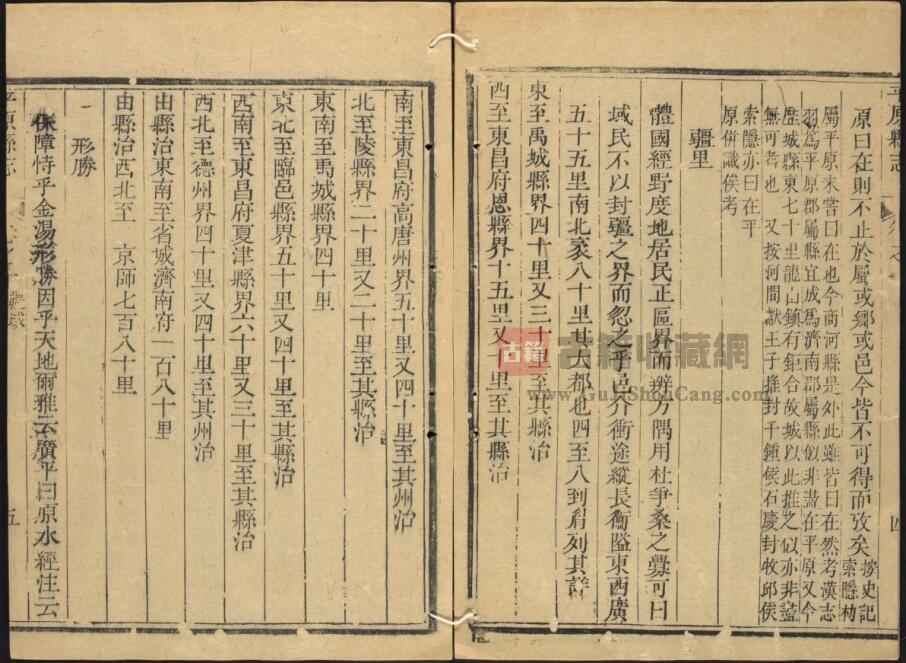 平原縣志
原曰在則不止於屬或鄉或邑今皆不可得而攷矣
按史記索隱枸
屬平原未嘗曰在也今南河縣是外此雖皆曰在然考漢志
羽爲平原郡屬縣宜成爲濟南郡屬縣似非盡在平原又今
歷城縣東七十里龍山鎮有鉅合故城以此推之似亦非盡
無可考也 又按河間獻王子推封千鍾侯石慶封牧邱侯
索隱亦曰在平
原併識俟考
疆里
體國經野度地居民正區界而辨方隅用杜爭桑之釁可曰
域民不以封疆之界而忽之乎邑介衝途縱長衡隘東西廣
五十五里南北袤八十里其大都也四至八到肩列其詳
東至禹城縣界四十里又三十里至其縣治
西至東昌府恩縣界十五里又
里至其縣治
四
南至東昌府高唐州界五十里又四十里至其州治
北至陵縣界二十里又二十里至其縣治
東南至禹城縣界四十里
東北至臨邑縣界五十里又四十里至其縣治
西南至東昌府夏津縣界六十里又三十里至其縣治
西北至德州界四十里又四十里至其州治
由縣治東南至省城濟南府一百八十里
由縣治西北至 京師七百八十里
形勝
保障恃乎金湯形勝因乎天地爾雅云廣平曰原水經注云
平原縣志
五
古籍
古籍收藏網
www.GuJiShouCang.com